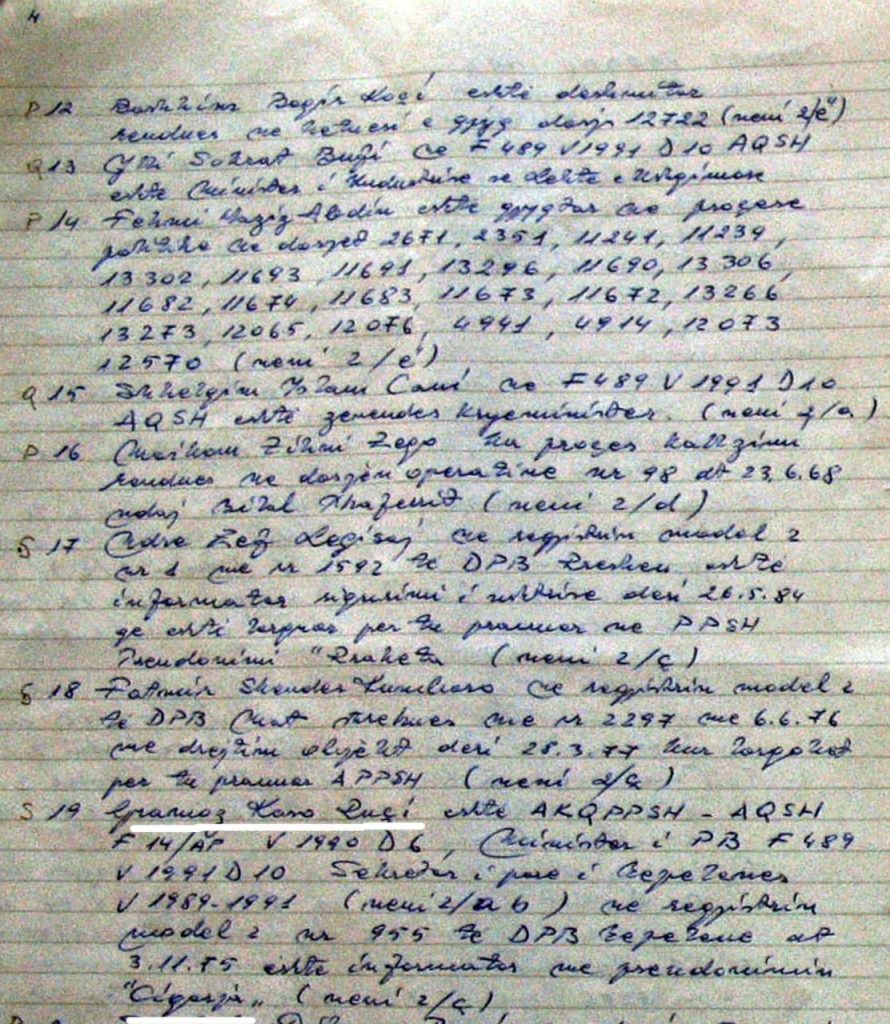 4
P 12 Bashkim Beqir Koçi eshte deshmitar
rendues ne hetuesi e gjyq dosja 12722 (neni 2/ë)
Q 13 Ylli Sokrat Bufi ne F 489 V 1991 D 10 AQSH
eshte Minister i Industrise se Lehte e Ushqimore
P 14 Fehmi Haziz Abdiu eshte gjygtar ne procese
politike ne dosjet 2671, 2351, 11241, 11239,
13302, 11693, 11691, 13296, 11690, 13306,
11682, 11674, 11683, 11673, 11672, 13266
13273, 12065, 12076, 4941, 4914, 12073
12570 (neni 2/ë)
Q 15 Shkelqim Cani ne F 489 V 1991 D 10
AQSH eshte zevendes kryeminister. (neni 2/a)
P 16 Moikom Zihni Zeqo ka proces kallzimi
rendues ne dosjen operative nr 98 dt 23.6.68
ndaj Bilal Xhaferrit (neni 2/d)
S 17 Ndre Zef Legisi ne regjistrin model 2
nr 1 me nr 1592 te DPB Rreshen eshte
informator sigurimi i shtetit deri 26.5.84
qe eshte larguar per tu pranuar ne PPSH
Pseudonimi "Raketa (neni 2/ç)
S 18 Fatmir Skender Kumbaro ne regjistrin model 2
te DPB Mat rekrut me nr 2297 me 6.6.76
me drejtim objekt deri 28.3.77 kur largohet
per tu pranuar APPSH (neni 2/ç)
S 19 Gramoz Kaso Ruçi eshte AKQPPSH - AQSH
F 14/AP V 1990 D 6, Minister i PB F 489
V 1991 D 10 Sekretar i pare i Tepelenes
V 1989-1991 (neni 2/a b) ne regjistrin
model 2 nr 955 te DPB Tepelene dt
3.11.75 eshte informator me pseudonimin
"Cigarja" (neni 2/ç)